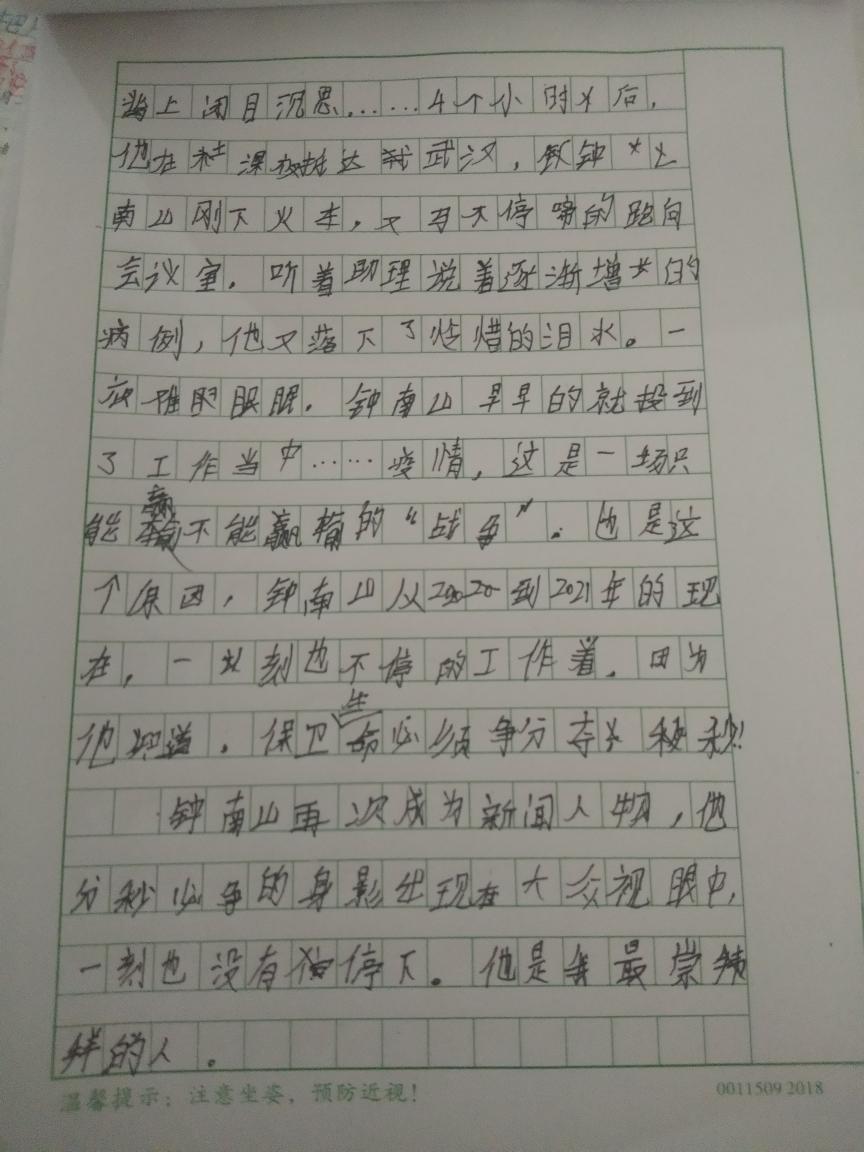 上闭目沉思……4个小时后，
他在深夜抵达武汉，钟
南山刚下火车，又马不停蹄的跑向
会议室。听着助理说着逐渐增的
病例，他又落下了惜的泪水。一
夜难眠。钟南山早早的就投到
了工作当中……疫情，这是一场只
能赢不能输的“战争”。也是这
个原因，钟南山从2020到2021年的现
在，一刻也不停的工作着。因为
他知道，保卫生命必须争分夺秒！
钟南山再次成为新闻人物，他
分秒必争的身影出现在大众视眼中，
一刻也没有停下。他是我最崇
拜的人。
温馨提示：注意坐姿，预防近视！
0011509 2018